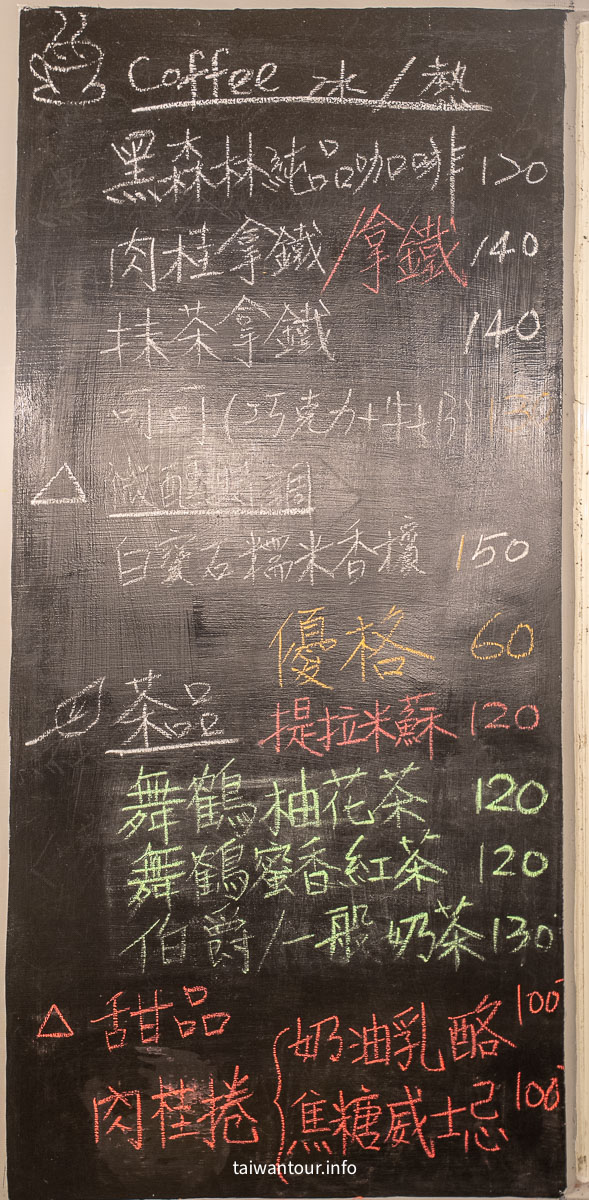 Coffee 冰/熱
黑森林純品咖啡 120
肉桂拿鐵/拿鐵 140
抹茶拿鐵 140
可可(巧克力+牛奶)
微醺時調
白寶石糯米香檳 150
優格 60
茶品 提拉米蘇 120
舞鶴柚花茶 120
舞鶴蜜香紅茶 120
伯爵/一般奶茶 130
甜品
奶油乳酪 100
肉桂捲
焦糖威士忌 100
taiwantour.info